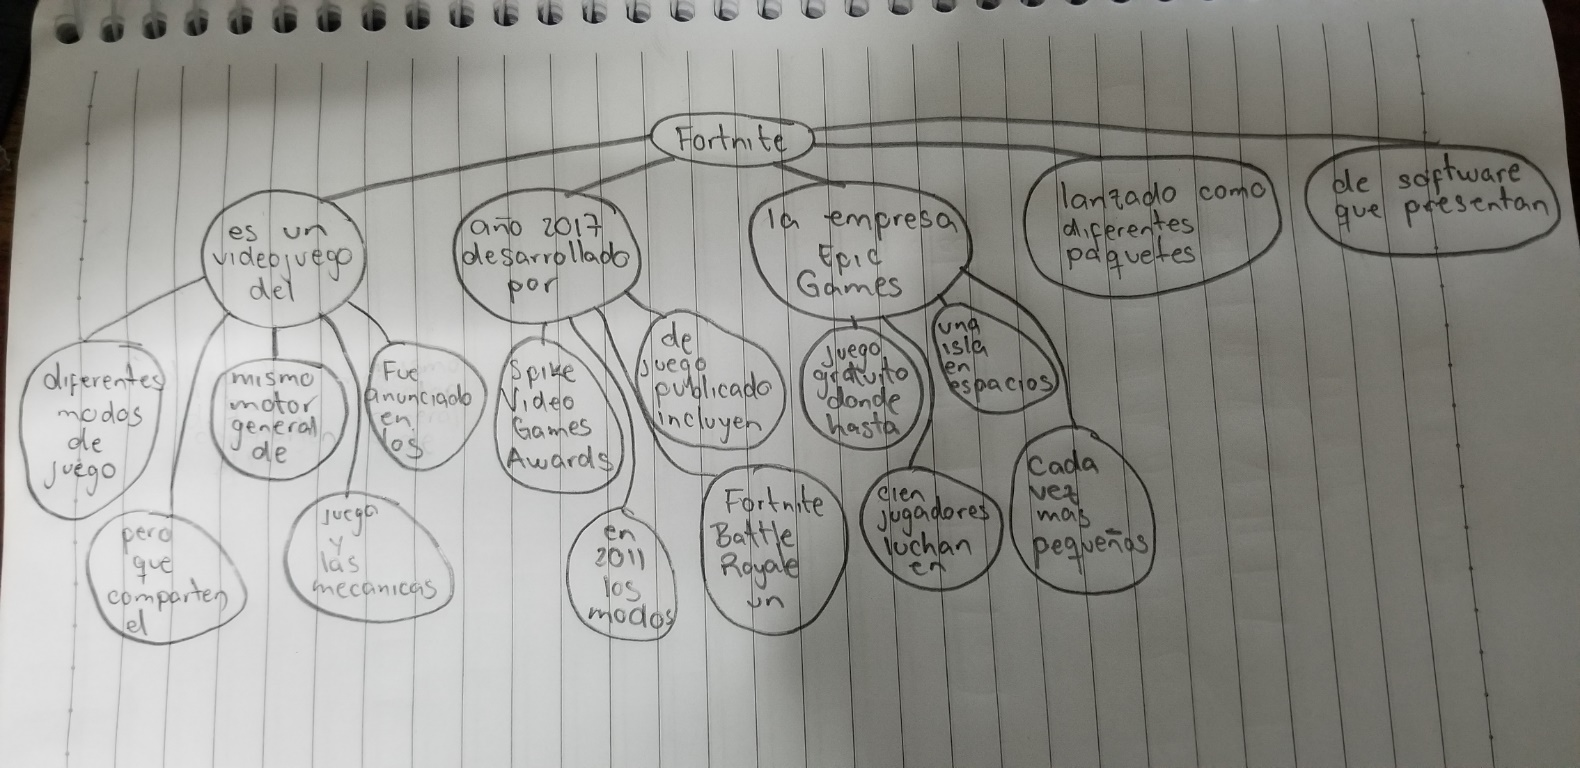 Fortnite
es un
videojuego
del
año 2017
desarrollado
por
la empresa
Epic
Games
lanzado como
diferentes
paquetes
de software
que presentan
diferentes
modos
de
juego
pero
que
comparten
el
mismo
motor
general
de
juego
y
las
mecanicas
Fue
anunciado
en
los
Spike
Video
Games
Awards
en
2011
los
modos
de
juego
publicado
incluyen
Fortnite
Battle
Royale
un
juego
gratuito
donde
hasta
cien
jugadores
luchan
en
una
isla
en
espacios
cada
vez
mas
pequeños